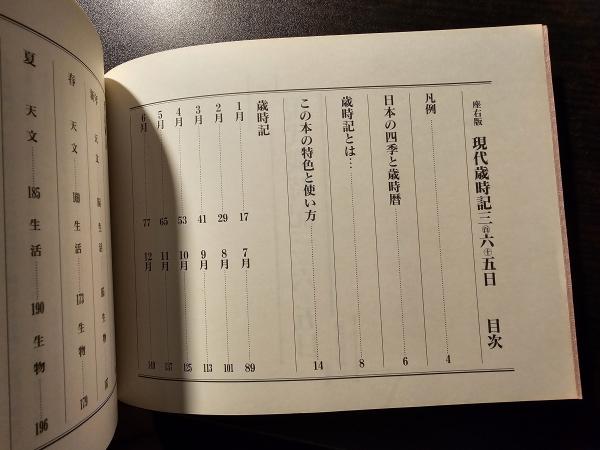 座右版 現代歳時記三� 六㊉五日 目次
凡例 4
日本の四季と歳時暦 6
歳時記とは… 8
この本の特色と使い方 14
歳時記
1月 17
2月 29
3月 41
4月 53
5月 65
6月 77
7月 89
8月 101
9月 113
10月 125
11月 137
12月 149
天文
生活
春
天文 169
生活 173
生物 179
夏
天文 185
生活 190
生物 196